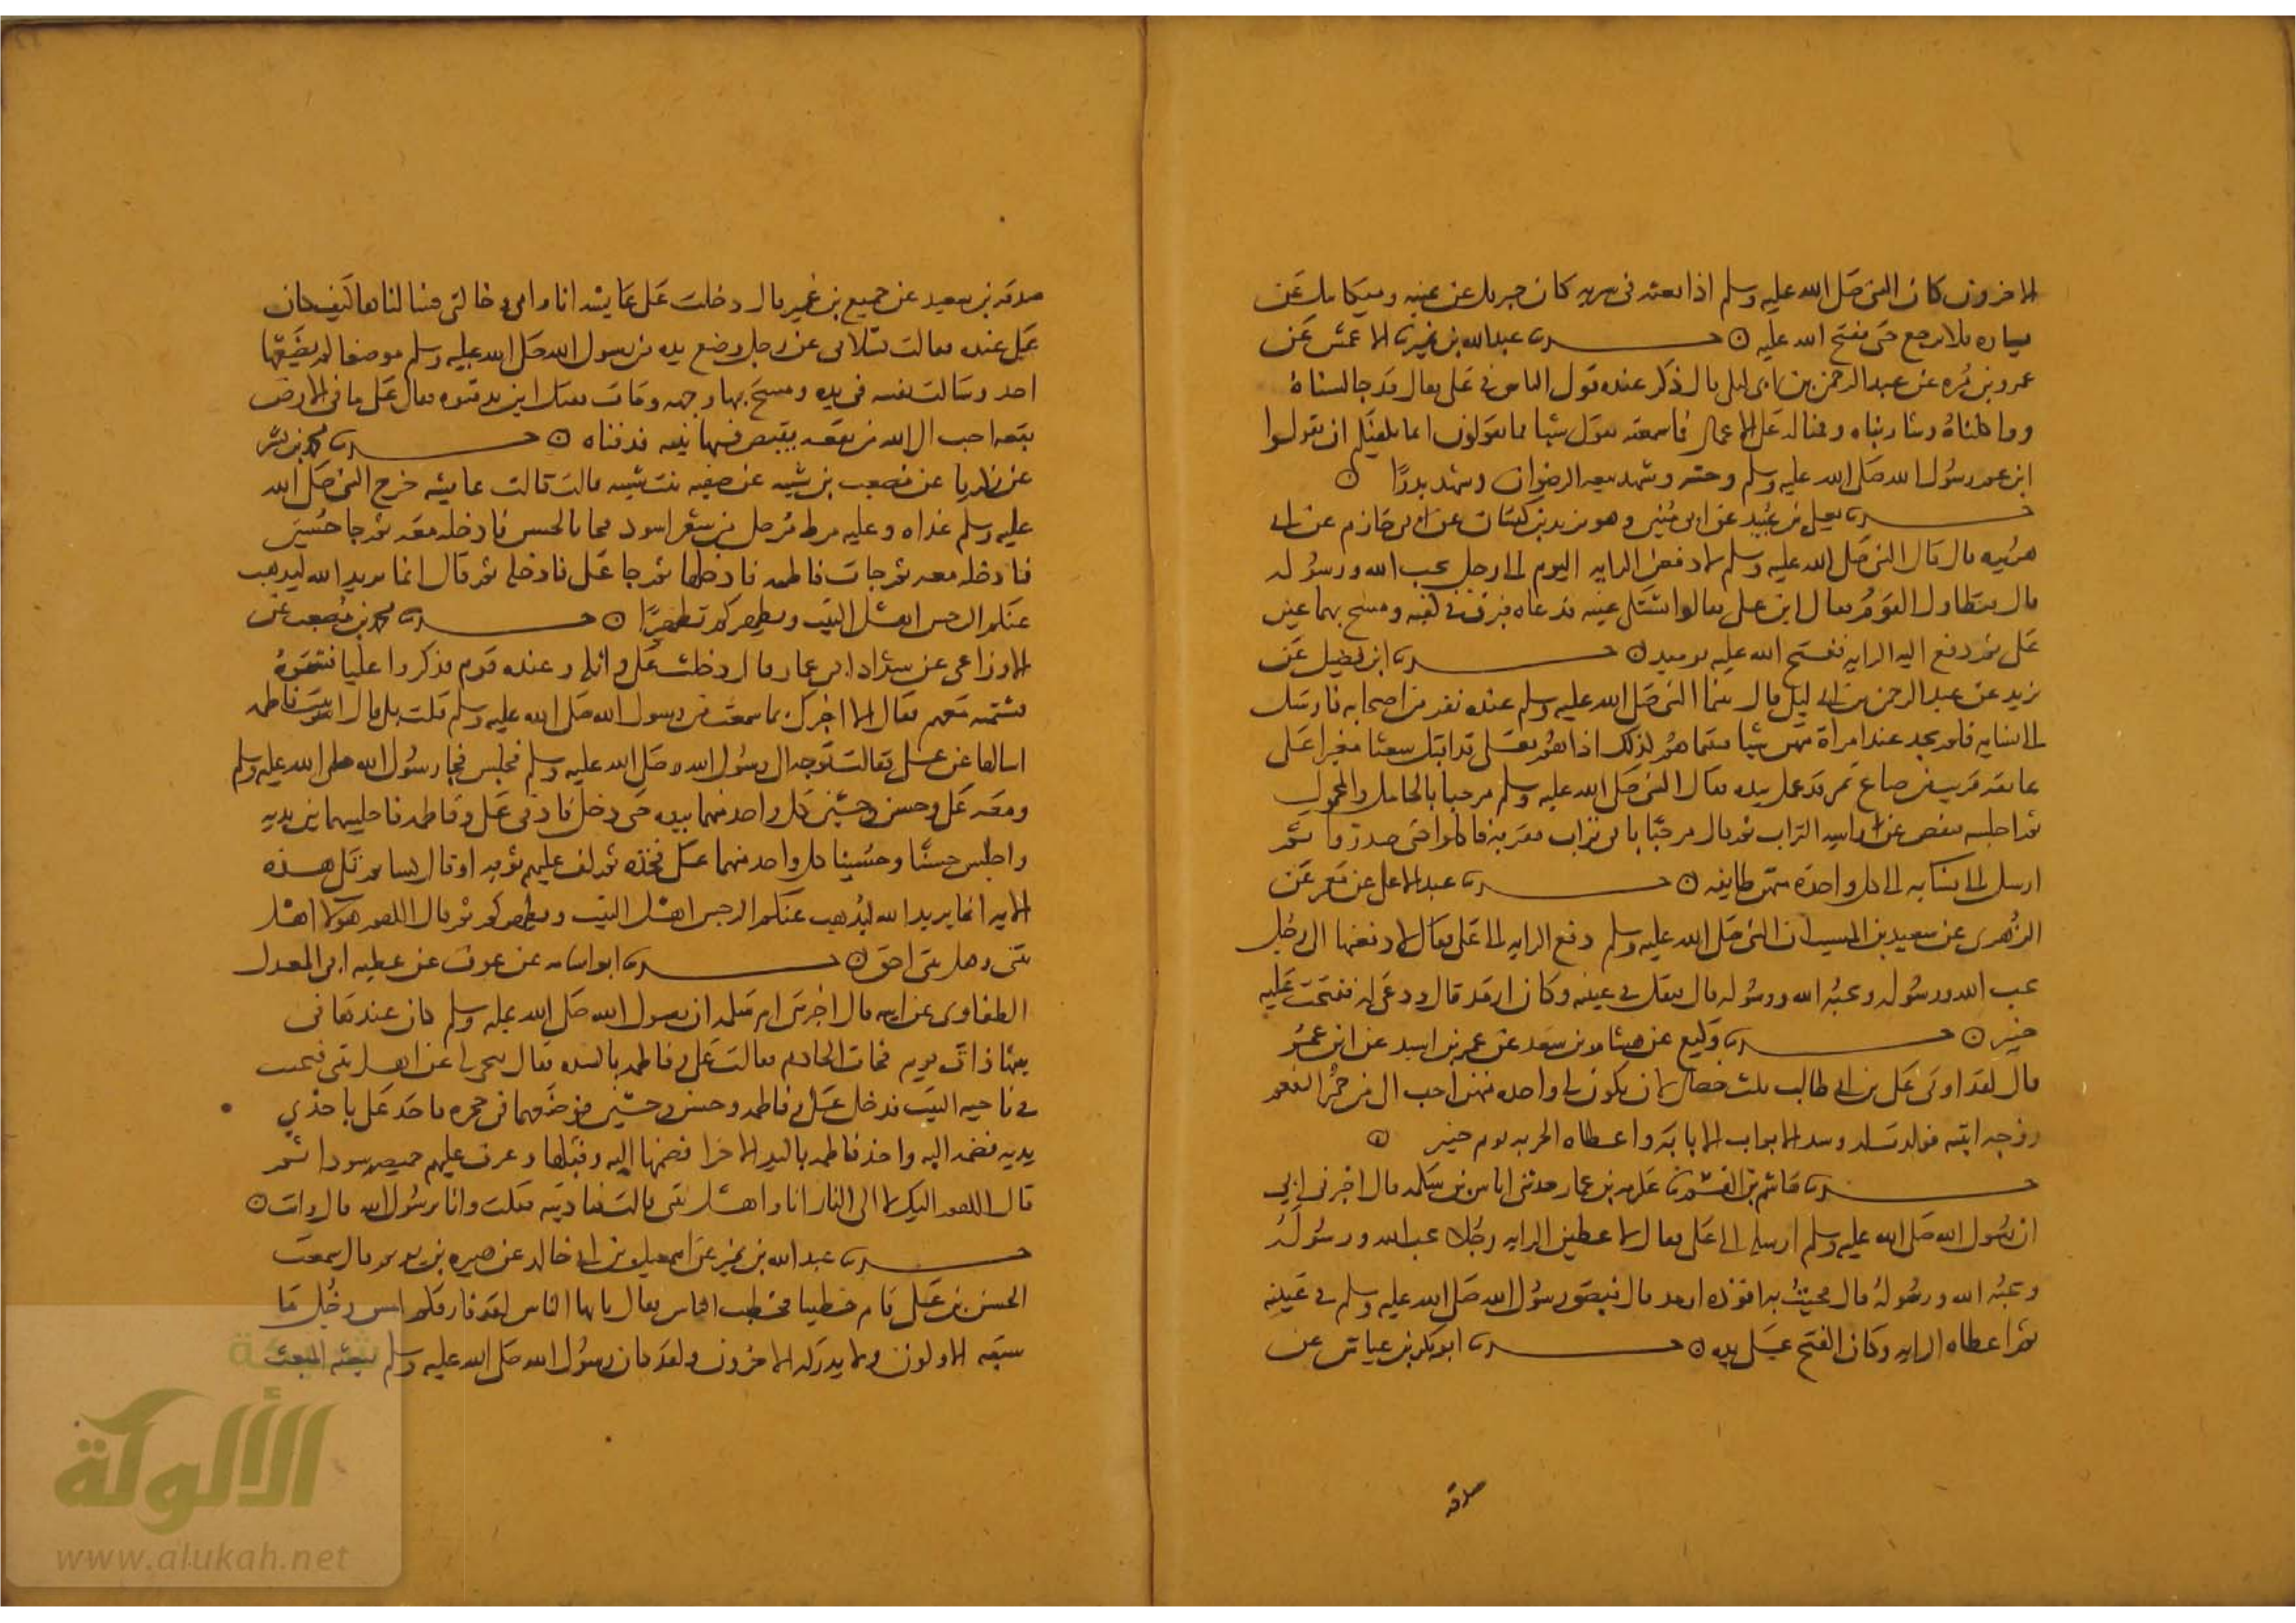 الاخرون كان النبي صلى الله عليه وسلم اذا بعثه في سريه كان جبريل عن يمينه وميكايل عن
يساره فلا يرجع حتى يفتح الله عليه ۞ حدثنا عبدالله بن نمير نا الاعمش عن
عمرو بن مره عن عبد الرحمن بن ابى ليلى قال ذكر عنده قول الناس في علي فقال قد جالسناه
وواكلناه وشاربناه وقمنا له على الاعمال فما سمعته يقول شيا مما يقولون انما يكفيكم ان تقولوا
ابن عم رسول الله صلى الله عليه وسلم وختنه وشهد بيعه الرضوان وشهد بدرًا ۞
حدثنا يعلى بن عبيد عن ابى منين وهو يزيد بن كيسان عن ابى حازم عن ابى
هريره قال قال النبي صلى الله عليه وسلم لادفعن الرايه اليوم الى رجل يحب الله ورسوله
قال فتطاول القوم فقال اين علي فقالوا يشتكي عينه فدعاه فبزق في كفيه ومسح بهما عين
علي ثم دفع اليه الرايه ففتح الله عليه يوميد ۞ حدثنا ابن فضيل عن
يزيد عن عبد الرحمن بن ابى ليلى قال بينما النبي صلى الله عليه وسلم عنده نفر من اصحابه فارسل
الى نسايه فلم يجد عند امراة منهن شيا فبينما هم كذلك اذا هم بعلي قد اقبل شعثا مغبرا على
عاتقه قريب من صاع تمر قد عمل بيده فقال النبي صلى الله عليه وسلم مرحبا بالحامل والمحمول
ثم اجلسه فنفض عن راسه التراب ثم قال مرحبًا بابى تراب فقربه فاكلوا حتى صدروا ثم
ارسل الى نسايه الى كل واحدة منهن طايفه ۞ حدثنا عبد الاعلى عن معمر عن
الزهري عن سعيد بن المسيب ان النبي صلى الله عليه وسلم دفع الرايه الى علي فقال لادفعنها الى رجل
يحب الله ورسوله ويحبه الله ورسوله قال فتفل في عينه وكان ارمد قال ودعى له ففتحت عليه
خيبر ۞ حدثنا وكيع عن هشام بن سعد عن عمر بن اسيد عن ابن عمر
قال لقد اوتي علي بن ابى طالب ثلث خصال لان يكون لي واحده منهن احب الي من حمر النعم
زوجه ابنته فولدت له وسد الابواب الا بابه واعطاه الحربه يوم خيبر ۞
حدثنا هاشم بن القسم نا عكرمه بن عمار حدثني اياس بن سلمه قال اخبرني ابي
ان رسول الله صلى الله عليه وسلم ارسله الى علي فقال لاعطين الرايه رجلا يحب الله ورسوله
ويحبه الله ورسوله قال فجيت به اقوده ارمد قال فبصق رسول الله صلى الله عليه وسلم في عينيه
ثم اعطاه الرايه وكان الفتح على يديه ۞ حدثنا ابو بكر بن عياش عن
صدقه
صدقه بن سعيد عن جميع بن عمير قال دخلت على عايشه انا وامي وخالتي فسالناها كيف كان
علي عنده فقالت تسلاني عن رجل وضع يده من رسول الله صلى الله عليه وسلم موضعا لم يضعها
احد وسالت نفسه في يده ومسح بها وجهه ومات فقيل اين تدفنوه فقال علي ما في الارض
بقعه احب الى الله من بقعه يقبض فيها نبيه فدفناه ۞ حدثنا محمد بن بشر
عن زكريا عن مصعب بن شيبه عن صفيه بنت شيبه قالت قالت عايشه خرج النبي صلى الله
عليه وسلم غداه وعليه مرط مرحل من شعر اسود فجا الحسن فادخله معه ثم جا حسين
فادخله معه ثم جات فاطمه فادخلها ثم جا علي فادخله ثم قال انما يريد الله ليذهب
عنكم الرجس اهل البيت ويطهركم تطهيرًا ۞ حدثنا محمد بن مصعب عن
الاوزاعي عن شداد ابى عمار قال دخلت على واثله وعنده قوم فذكروا عليا فشتموه
فشتمته معهم فقال الا اخبرك بما سمعت من رسول الله صلى الله عليه وسلم قلت بلى قال اتيت فاطمه
اسالها عن علي فقالت توجه الى رسول الله صلى الله عليه وسلم فجلس فجا رسول الله صلى الله عليه وسلم
ومعه علي وحسن وحسين كل واحد منهما بيده حتى دخل فادنى علي وفاطمه فاجلسهما بين يديه
واجلس حسنًا وحسينا كل واحد منهما على فخذه ثم لف عليهم ثوبه او قال كسا ثم تلى هذه
الايه انما يريد الله ليذهب عنكم الرجس اهل البيت ويطهركم ثم قال اللهم هولا اهل
بيتي وهل بيتي احق ۞ حدثنا ابو اسامه عن عوف عن عطيه ابى المعدل
الطفاوي عن ابيه قال اخبرتني ام سلمه ان رسول الله صلى الله عليه وسلم كان عندها في
بيتها ذات يوم فجات الخادم فقالت علي وفاطمه بالسده فقال تنحي لي عن اهل بيتي فتنحت
في ناحيه البيت فدخل علي وفاطمه وحسن وحسين فوضعهما في حجره واخذ علي باحدي
يديه فضمه اليه واخذ فاطمه باليد الاخرا فضمها اليه وقبلها واغدف عليهم خميصه سودا ثم
قال اللهم اليك لا الى النار انا واهل بيتي قالت فناديته فقلت وانا يرسول الله قال وانت ۞
حدثنا عبد الله بن نمير عن اسمعيل بن ابى خالد عن هبيره بن يريم قال سمعت
الحسن بن علي قام خطيبا فخطب الناس فقال يايها الناس لقد فارقكم امس رجل ما
سبقه الاولون ولا يدركه الاخرون ولقد كان رسول الله صلى الله عليه وسلم يبعثه المبعث
شبكة
الألوكة
www.alukah.net